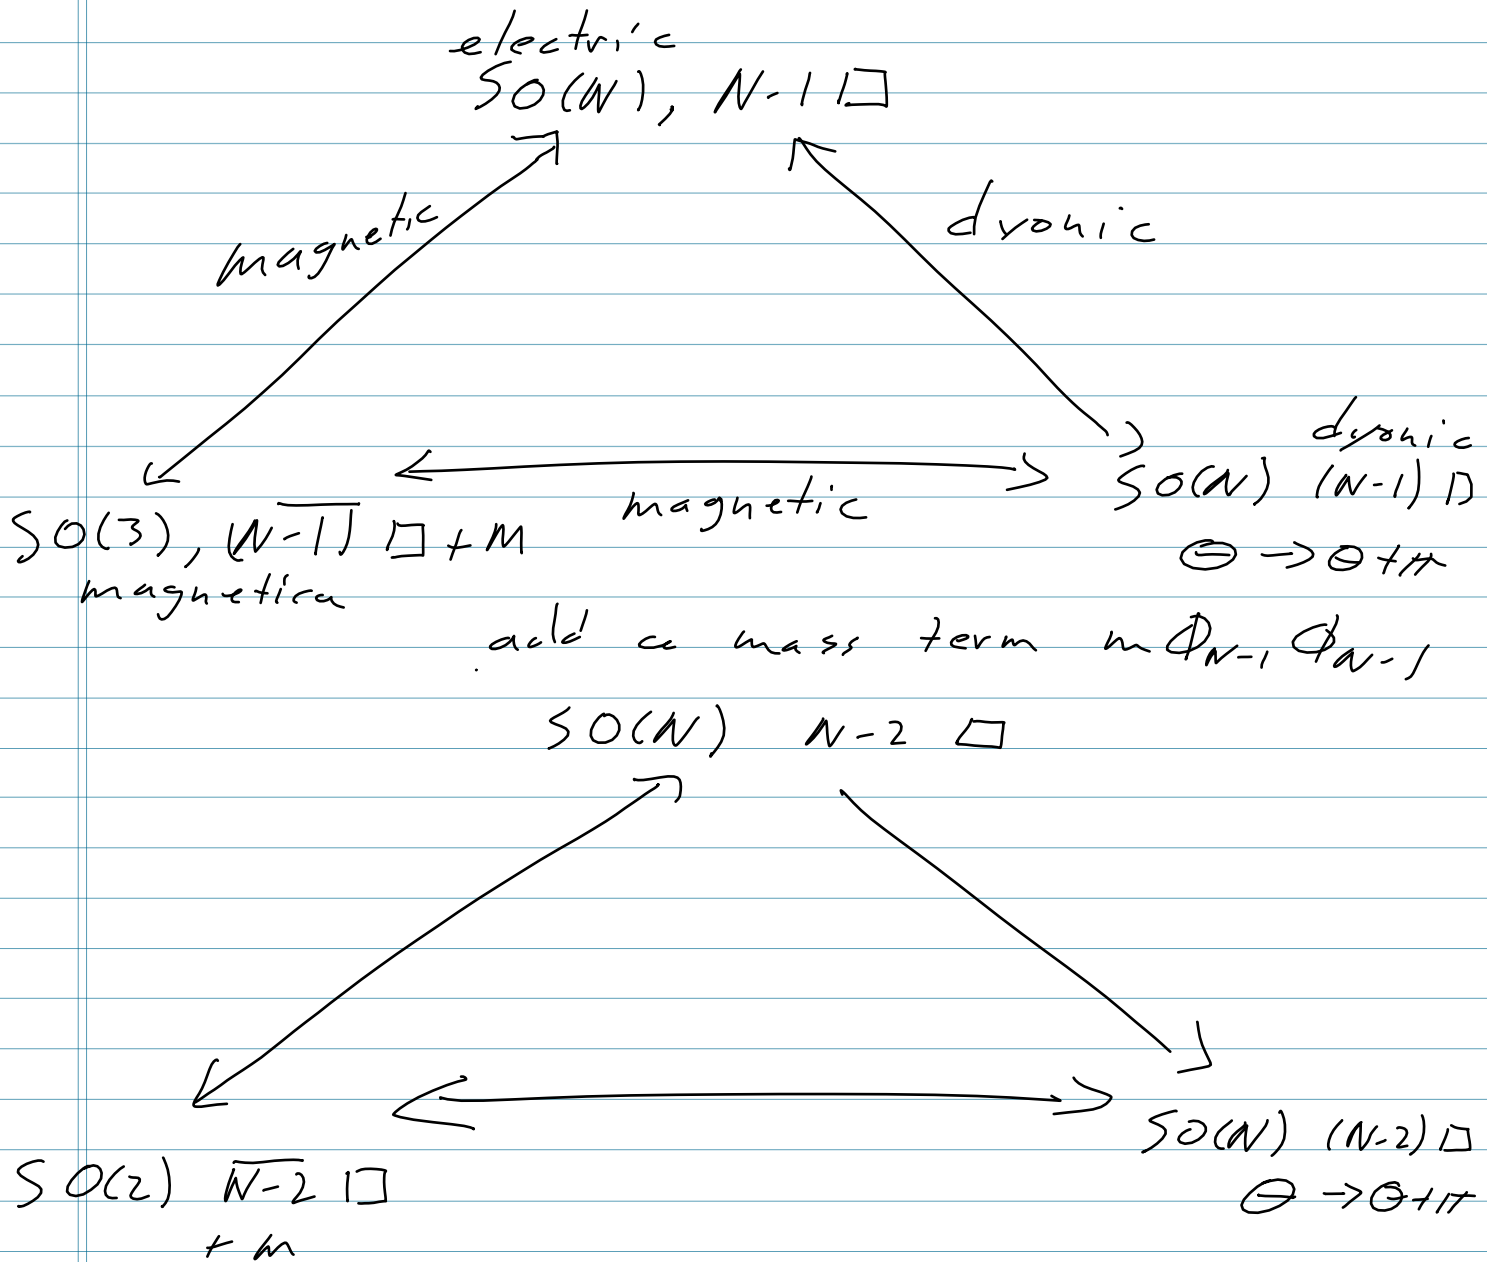 electric
SO(N), N-1 □
magnetic
dyonic
dyonic
magnetic
SO(N) (N-1) □
SO(3), (N-1) □ + M
θ → θ+π
magnetica
add a mass term m Φ_{N-1} Φ_{N-1}
SO(N) N-2 □
SO(N) (N-2) □
SO(2) N-2 □
θ → θ+π
+ m